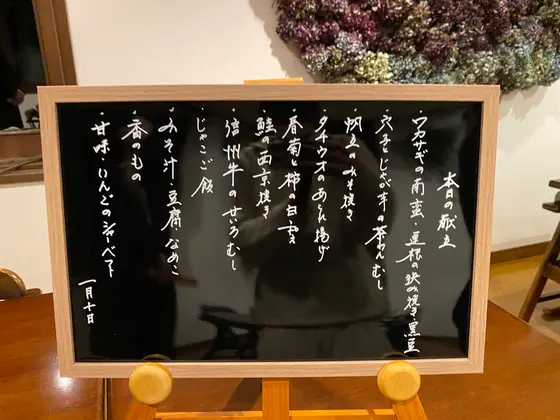 本日の献立
・ワカサギの南蛮・蓮根の挟み焼き・黒豆
・穴子とじゃが芋の茶わんむし
・帆立のみそ焼き
・タチウオのあられ揚げ
・春菊と柿の白和え
・鮭の西京焼き
・信州牛のせいろむし
・じゃこご飯
・みそ汁・豆腐・なめこ
・香のもの
・甘味・りんごのシャーベット
一月十日